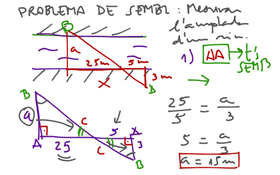 PROBLEMA DE SEMBL: Mesurar
l'amplada
d'un riu.
1) ΔΔ → t's
SEMB
B
a
25m
5m
x
3m
B
25/5 = a/3
5 = a/3
a = 15m
B
a
A
25
C
C
5
A
3
B